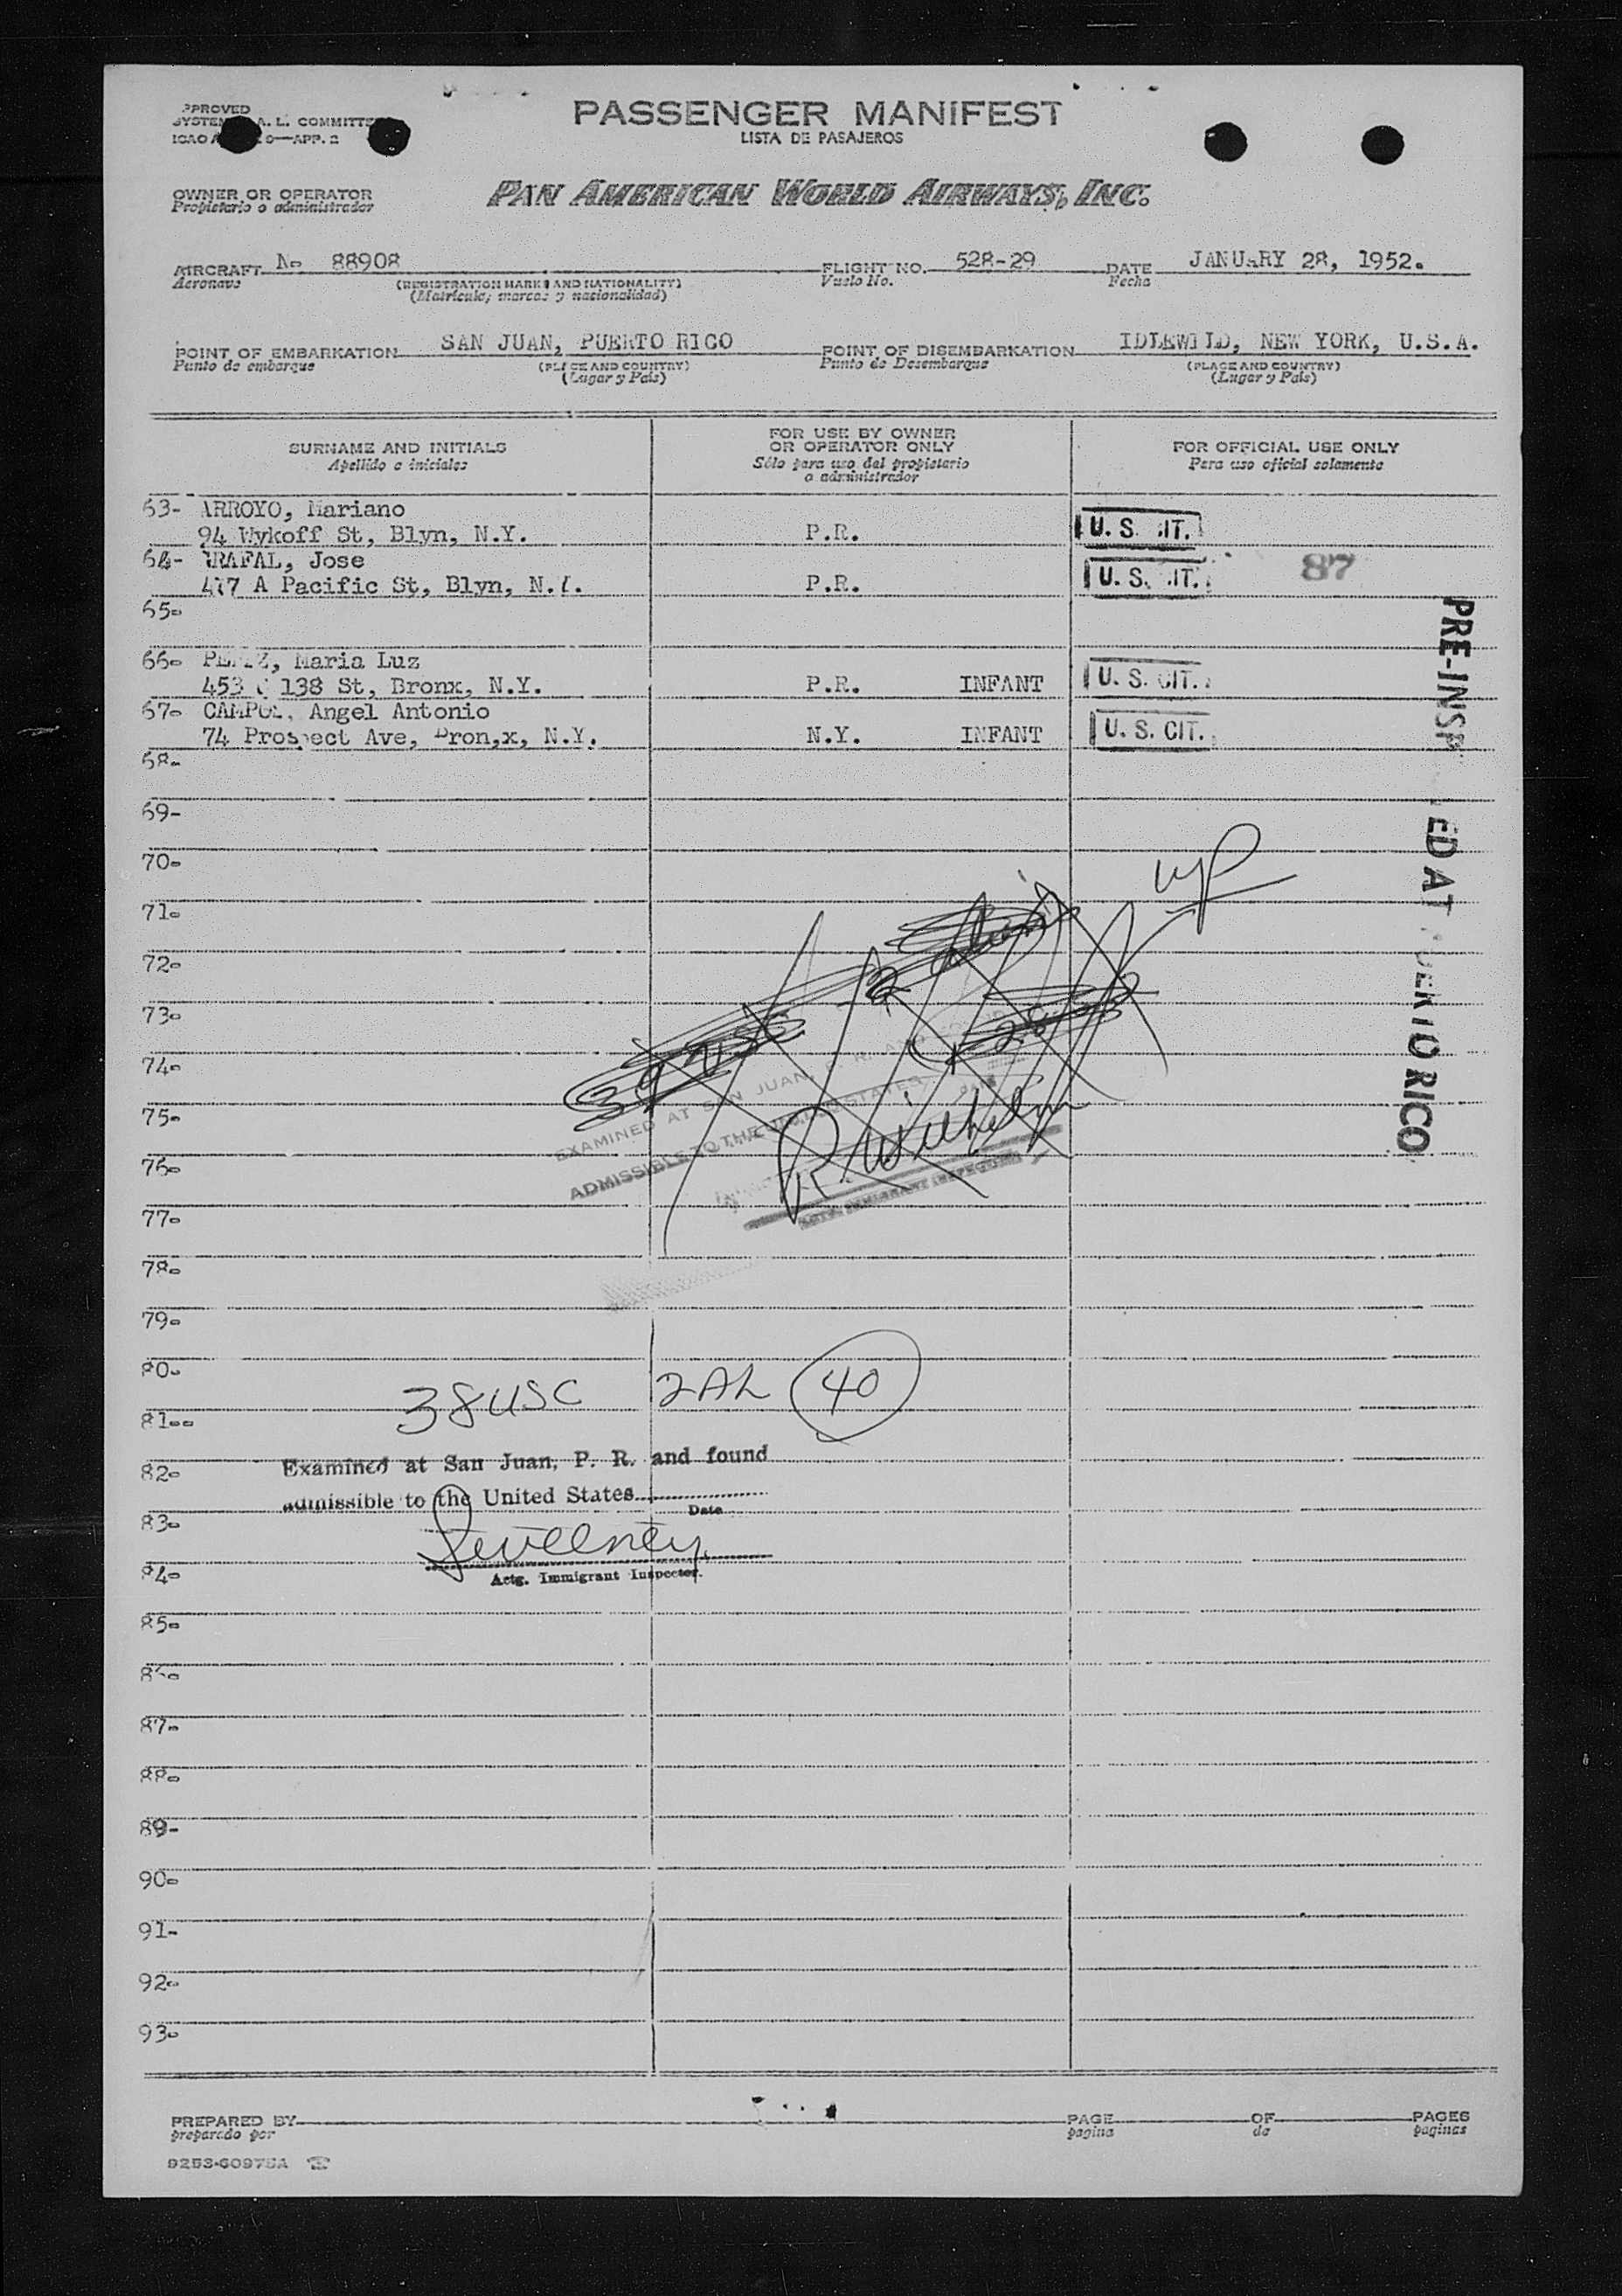 APPROVED
SYSTEM A. L. COMMITTEE
ICAO 9—APP. 2
PASSENGER MANIFEST
LISTA DE PASAJEROS
OWNER OR OPERATOR
Propietario o administrador
PAN AMERICAN WORLD AIRWAYS, INC.
AIRCRAFT No 88908 FLIGHT NO. 528-29 DATE JANUARY 28, 1952.
Aeronave (REGISTRATION MARKS AND NATIONALITY) Vuelo No. Fecha
(Matrícula, marcas y nacionalidad)
POINT OF EMBARKATION SAN JUAN, PUERTO RICO POINT OF DISEMBARKATION IDLEWILD, NEW YORK, U.S.A.
Punto de embarque (PLACE AND COUNTRY) Punto de Desembarque (PLACE AND COUNTRY)
(Lugar y País) (Lugar y País)
SURNAME AND INITIALS
Apellido e iniciales
FOR USE BY OWNER
OR OPERATOR ONLY
Sólo para uso del propietario
o administrador
FOR OFFICIAL USE ONLY
Para uso oficial solamente
63- ARROYO, Mariano
94 Wykoff St, Blyn, N.Y. P.R. U. S. CIT.
64- Jose
417 A Pacific St, Blyn, N.Y. P.R. U. S. CIT. 87
65-
66- Maria Luz
453 138 St, Bronx, N.Y. P.R. INFANT U. S. CIT.
67- Angel Antonio
74 Prospect Ave, Bron,x, N.Y. N.Y. INFANT U. S. CIT.
PRE-INSPECTED AT PUERTO RICO
68-
69-
70-
71-
72-
73-
74-
75-
EXAMINED AT SAN JUAN,
76-
ADMISSIBLE TO THE UNITED STATES
77-
78-
79-
80-
38 USC 2AL 40
81--
82- Examined at San Juan, P. R. and found
admissible to the United States
Date
83-
Sweeney
84- Actg. Immigrant Inspector.
85-
86-
87-
88-
89-
90-
91-
92-
93-
PREPARED BY PAGE OF PAGES
preparado por pagina de paginas